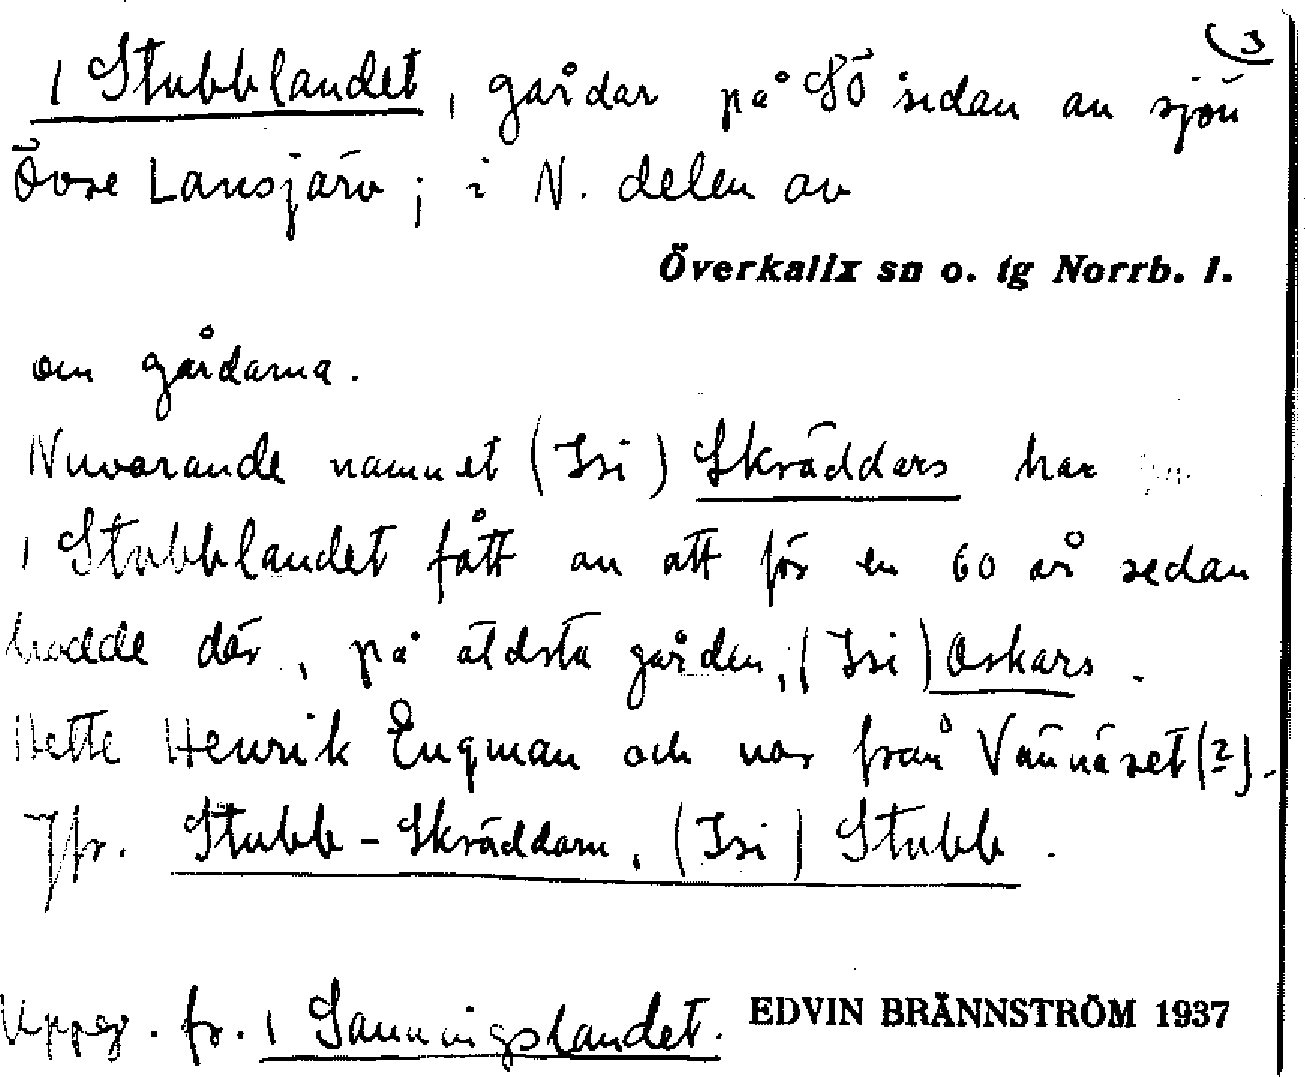 (3
I Stubblandet, gårdar på SÖ sidan av sjön
Övre Lansjärv; i N. delen av
Överkalix sn o. tg Norrb. l.
om gårdarna.
Nuvarande namnet (Isi) Skräddars har
I Stubblandet fått av att för en 60 år sedan
bodde där, på äldsta gården, (Isi) Oskars.
Hette Henrik Engman och var från Vännäset (?).
Jfr. Stubb-Skräddarn, (Isi) Stubb.
Uppg. fr. I Sanningslandet. EDVIN BRÄNNSTRÖM 1937